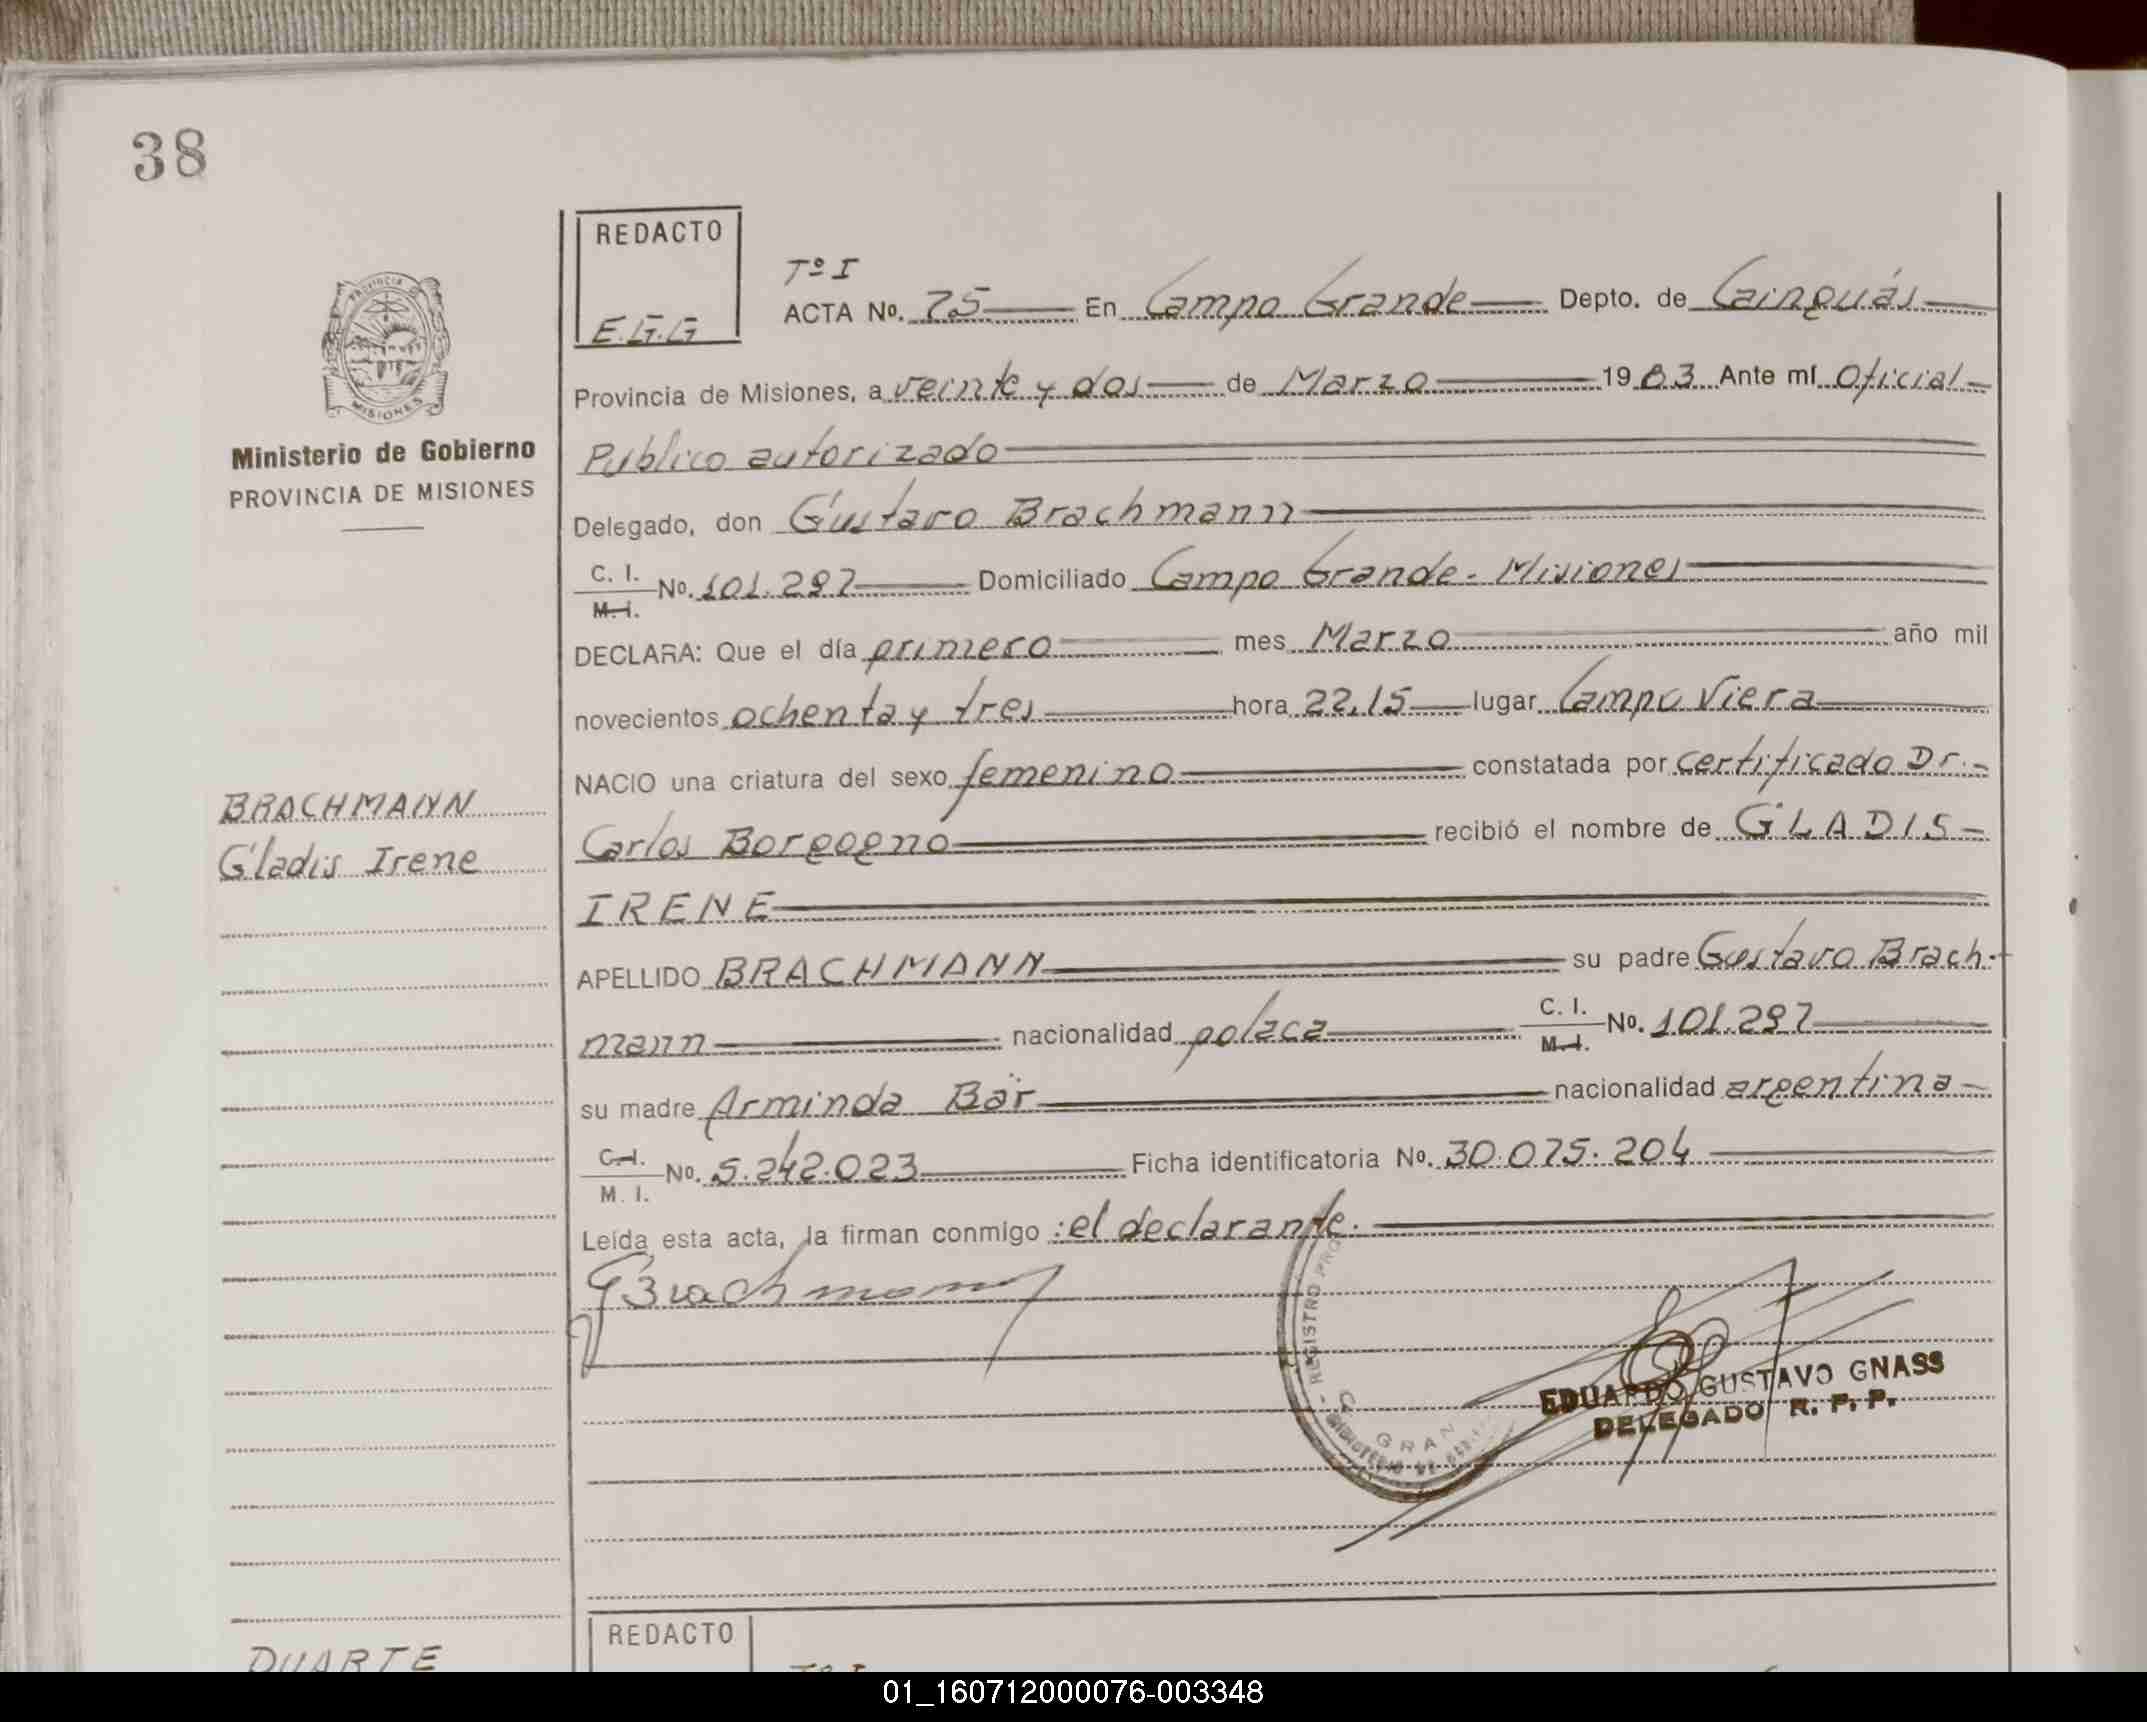 38
REDACTO
E.G.G
Tº I
ACTA No. 75 En Campo Grande Depto. de Cainguás
Provincia de Misiones, a veinte y dos de Marzo 1983 Ante mí Oficial
Publico autorizado
PROVINCIA
MISIONES
Ministerio de Gobierno
PROVINCIA DE MISIONES
Delegado, don Gustavo Brachmann
C. I.
M. I. No. 101.297 Domiciliado Campo Grande - Misiones
DECLARA: Que el día primero mes Marzo año mil
novecientos ochenta y tres hora 22,15 lugar Campo Viera
NACIO una criatura del sexo femenino constatada por certificado Dr.
BRACHMANN
Gladis Irene
Carlos Borgogno recibió el nombre de GLADIS
IRENE
APELLIDO BRACHMANN su padre Gustavo Brach-
mann nacionalidad polaca C. I.
M. I. No. 101.297
su madre Arminda Bär nacionalidad argentina
C. I.
M. I. No. 5.242.023 Ficha identificatoria No. 30.075.204
Leída esta acta, la firman conmigo : el declarante.
GBrachmann
REGISTRO PRO
C. GRAN
MINISTERIO DE
EDUARDO GUSTAVO GNASS
DELEGADO R. P. P.
REDACTO
DUARTE
Tº I
01_160712000076-003348